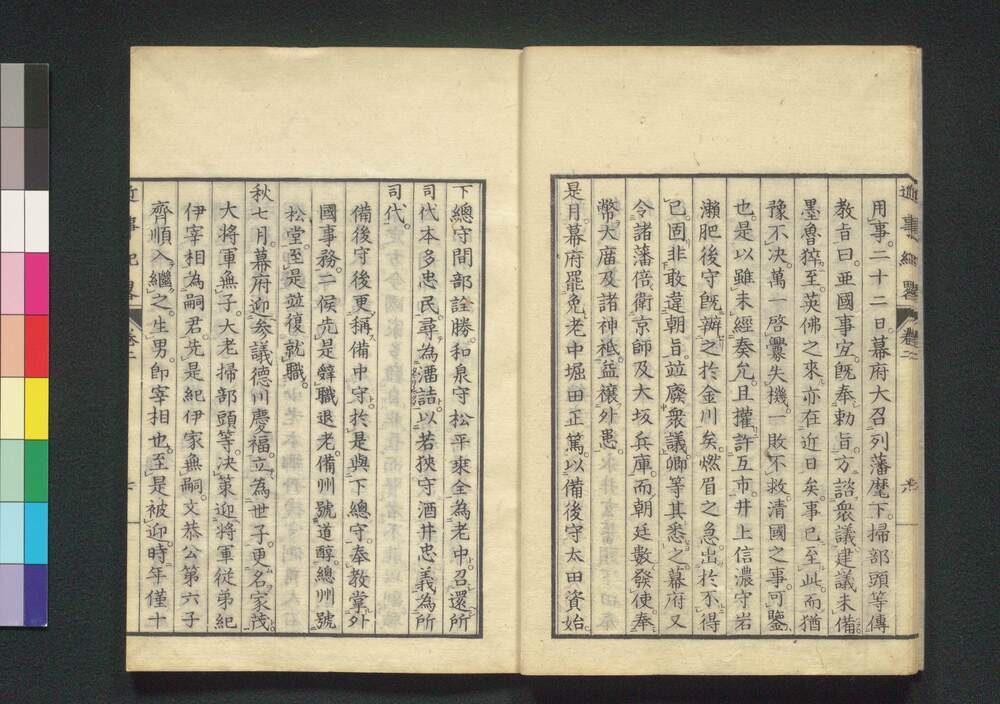 用事。二十二日。幕府大召列藩麾下。掃部頭等傳
教旨曰。亜國事宜。既奉勅旨。方諮衆議。建議未備。
墨魯猝至。英佛之來。亦在近日矣。事已至此。而猶
豫不決。萬一啓釁失機。一敗不救。清國之事。可鑒
也。是以雖未經奏允。且權許互市。井上信濃守。岩
瀬肥後守。既辨之於金川矣。燃眉之急。出於不得
已。固非敢違朝旨。竝廢衆議。卿等其悉之。幕府又
令諸藩倍衛京師及大坂兵庫。而朝廷數發使。奉
幣大廟及諸神祗。益禳外患。
是月。幕府罷免老中堀田正篤。以備後守太田資始。
下總守間部詮勝。和泉守松平乘全為老中。召還所
司代本多忠民。尋為溜詰。以若狹守酒井忠義為所
司代。
備後守後更稱備中守。於是與下總守。奉教掌外
國事務。二侯先是辭職退老。備州號道醇。總州號
松堂。至是竝復就職。
秋七月。幕府迎參議德川慶福。立為世子。更名家茂。
大將軍無子。大老掃部頭等。決策迎將軍從弟紀
伊宰相為嗣君。先是紀伊家無嗣。文恭公第六子
齊順入繼之。生男。卽宰相也。至是被迎。時年僅十
近事紀畧
卷二